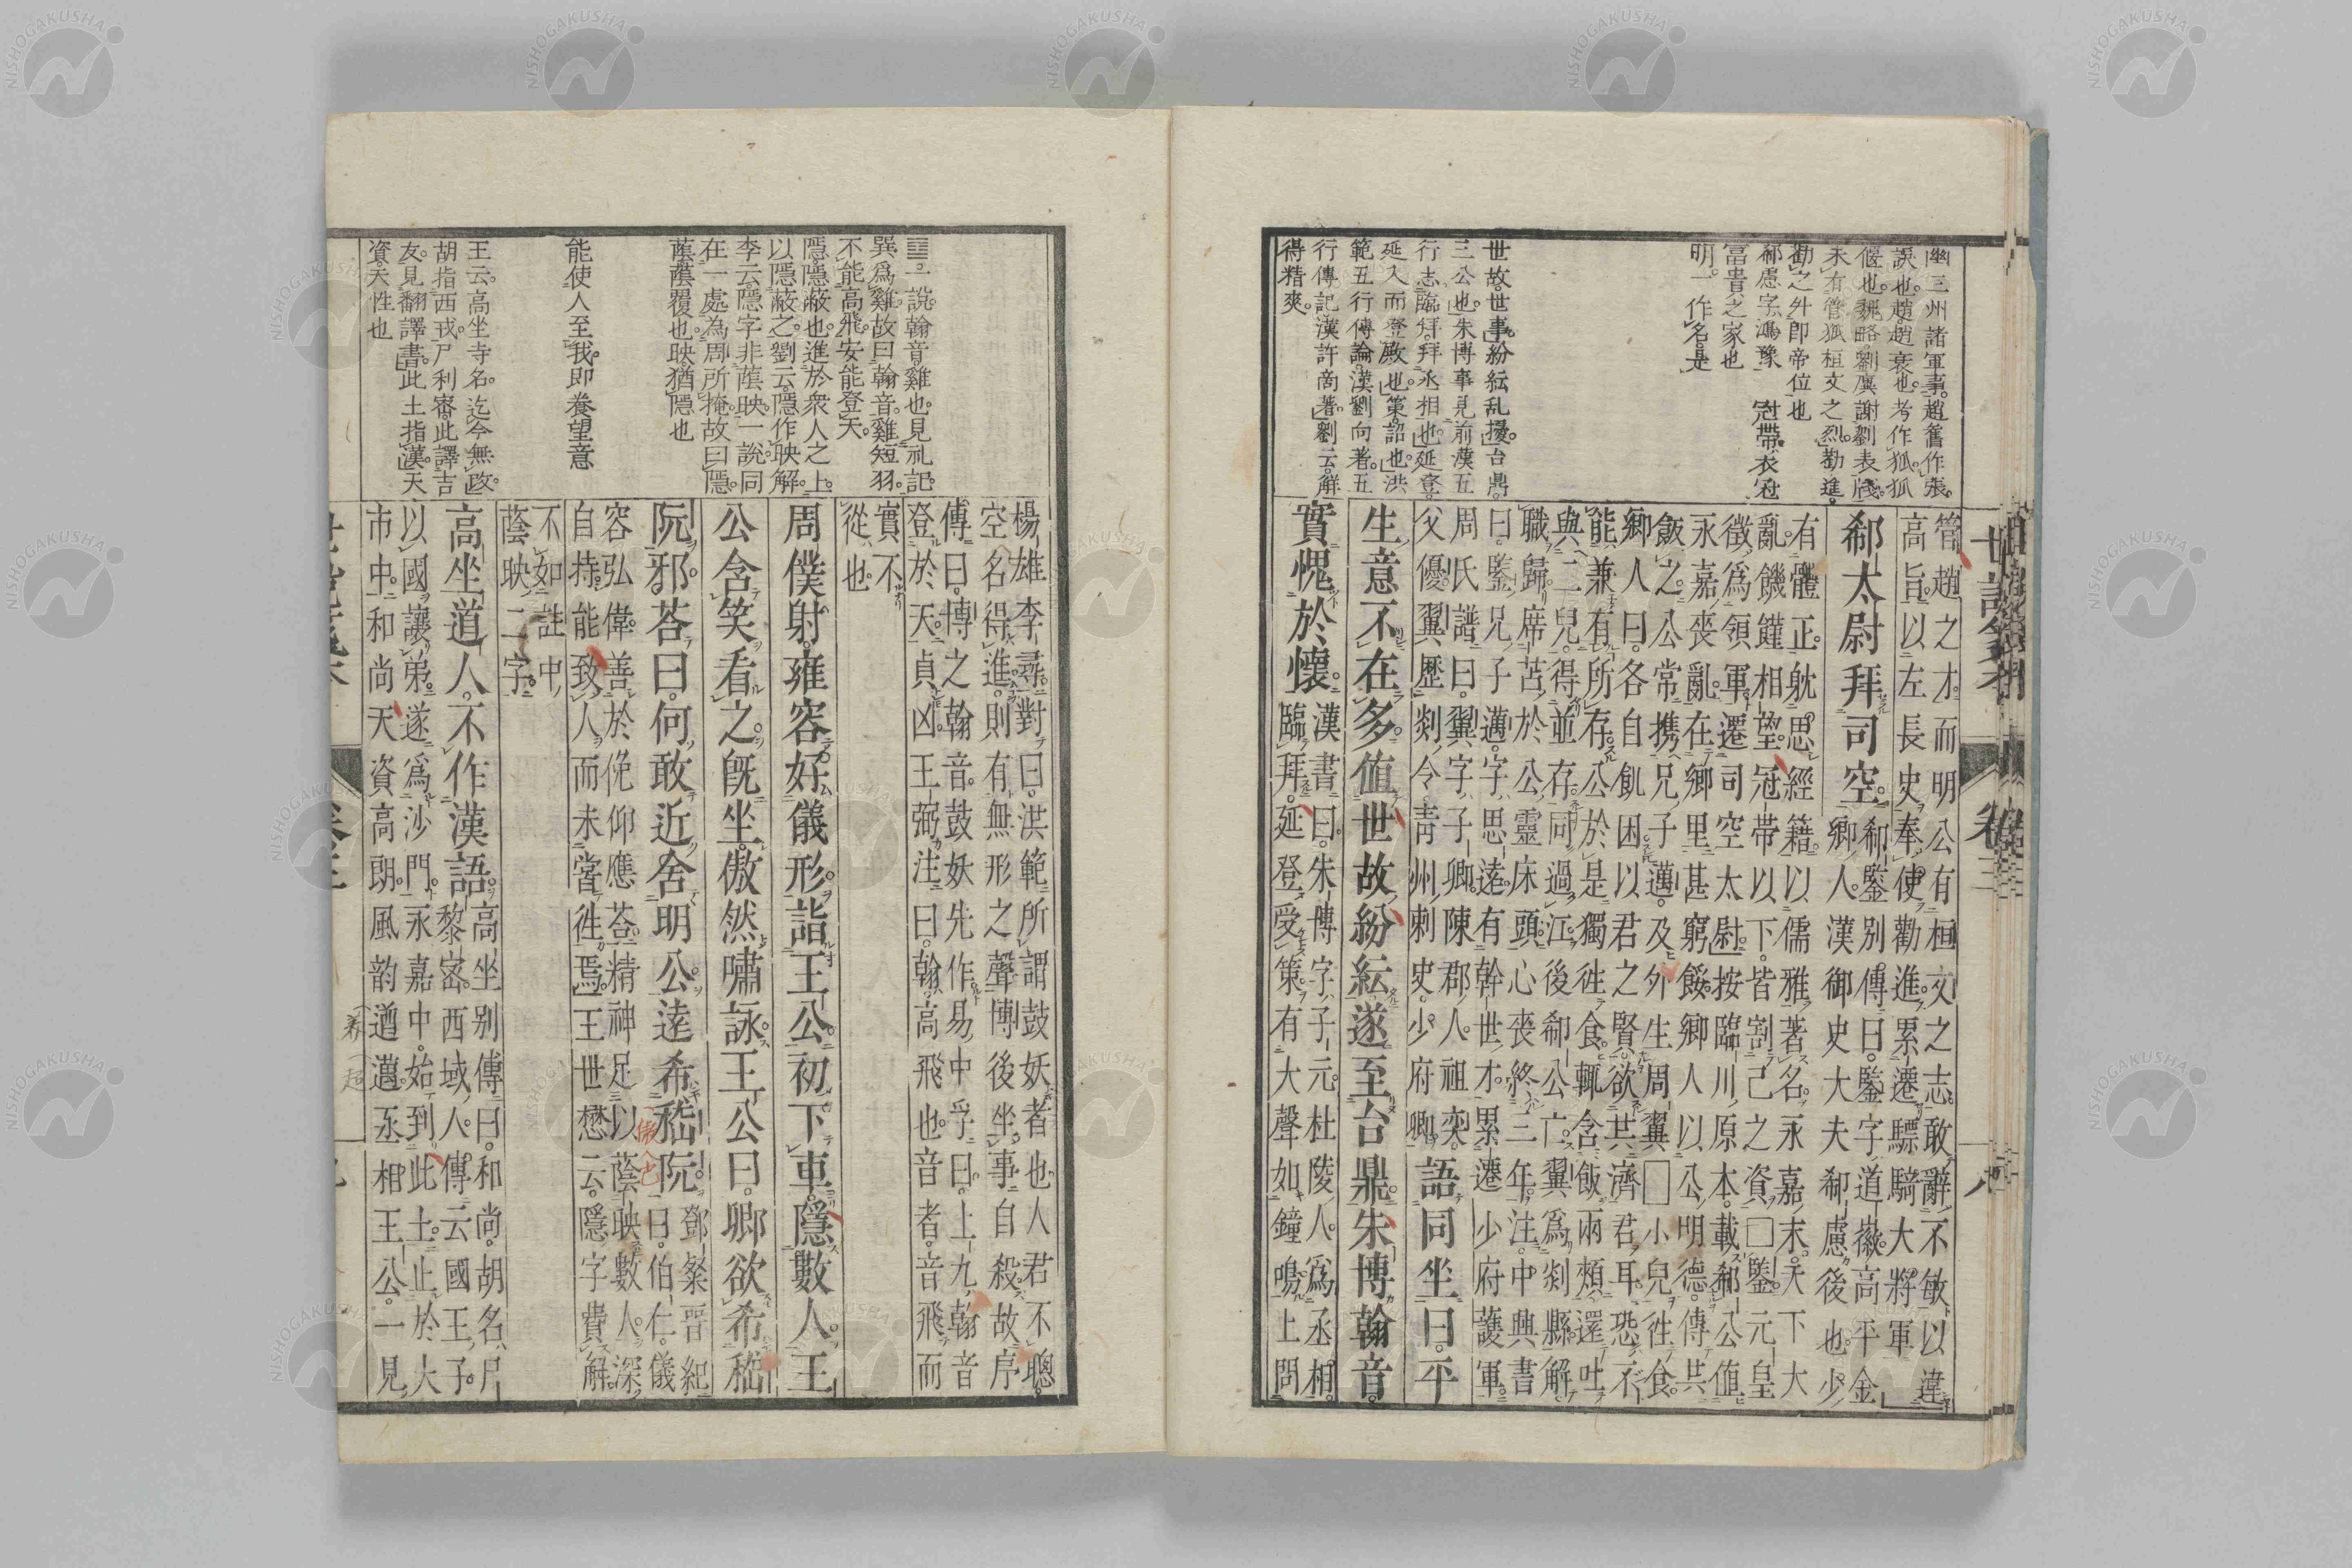 幽三州諸軍事。趙舊作張。
誤也。趙趙衰也。考作狐。狐
偃也。魏略。劉廙謝劉表牋。
未有管狐桓文之烈。勸進。
勸之舛卽帝位也
郗慮字鴻豫 冠帶。衣冠
富貴之家也
明。一作名。是
世故。世事。紛紜乱擾。台鼎。
三公也。朱博事見前漢五
行志。臨拜。拜丞相也。延登。
延入而登殿也。策。詔也。洪
範五行傳論。漢劉向著。五
行傳記。漢許商著。劉云。解
得精爽。
管趙之才。而明公有桓文之志。敢辭不敏。以違
高旨。以左長史奉使勸進。累遷驃騎大將軍
郗太尉拜司空。
郗鑒別傳曰。鑒字道徽。高平金
鄉人。漢御史大夫郗慮後也。少
有體正。躭思經籍。以儒雅著名。永嘉末。天下大
亂。饑饉相望。冠帶以下。皆割己之資□鑒。元皇
徵爲領軍。遷司空太尉。按臨川原本。載郗公值
永嘉喪亂。在鄉里甚窮餒。鄉人以公明德。傳共
飯之。公常携兄子邁及外生周翼□小兒往食。
鄉人曰。各自飢困。以君之賢。欲共濟君耳。恐不
能兼有所存。公於是獨往食。輙含飯兩頰。還吐
與二兒。得並存。同過江。後郗公亡。翼爲剡縣解
職歸。席苫於公靈床頭。心喪終三年。注。中興書
曰。鑒兄子邁。字思逺。有幹世才。累遷少府護軍。
周氏譜曰。翼字子卿。陳郡人。祖奕。
父優。翼歷剡令。靑州刺史。少府卿。
語同坐曰。平
生意不在多。值世故紛紜。遂至台鼎。朱博翰音。
實愧於懷。
漢書曰。朱博字子元。杜陵人。爲丞相。
臨拜。延登受策。有大聲如鐘鳴。上問
世說箋本
卷三
八
䷼。一說。翰音。雞也。見礼記。
巽爲雞。故曰翰音。雞短羽。
不能高飛。安能登天。
隱。隱蔽也。進於衆人之上。
以隱蔽之。劉云。隱作映解。
李云。隱字非蔭映。一說。同
在一處。為周所掩。故曰隱。
蔭。蔭覆也。映猶隱也
能使人至我。卽養望意
王云。高坐寺名。迄今無政。
胡指西戎。尸利宻此譯吉
友。見翻譯書。此土指漢。天
資。天性也
楊雄李尋。對曰。洪範所謂鼓妖者也。人君不聰。
空名得進。則有無形之聲。博後坐事自殺。故序
傳曰。博之翰音。鼓妖先作。易中孚曰。上九。翰音
登於天。貞凶。王弼注曰。翰高飛也。音者。音飛而
實不
從也
周僕射。雍容好儀形。詣王公。初下車。隱數人。王
公含笑看之。旣坐。傲然嘯詠。王公曰。卿欲希嵇
阮邪。荅曰。何敢近舍明公。逺希嵇阮。
鄧粲晉紀
曰。伯仁。儀
容弘偉。善於俛仰應荅。精神足以蔭映數人。深
自持。能致人而未嘗徃焉。王世懋云。隱字費解。
不如註中
蔭映二字。
高坐道人。不作漢語。
高坐别傳曰。和尚。胡名尸
黎宻。西域人。傳云國王子。
以國讓弟。遂爲沙門。永嘉中。始到此土。止於大
市中。和尚天資高朗。風韵遒邁。丞相王公。一見